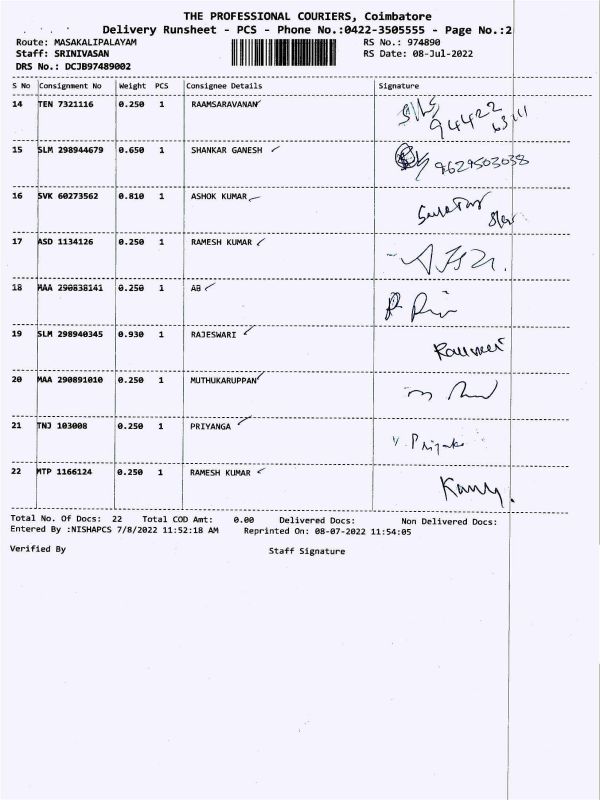 THE PROFESSIONAL COURIERS, Coimbatore
Delivery Runsheet - PCS - Phone No.:0422-3505555 - Page No.:2
Route: MASAKALIPALAYAM RS No.: 974890
Staff: SRINIVASAN RS Date: 08-Jul-2022
DRS No.: DCJB97489002
S No Consignment No Weight PCS Consignee Details Signature
14 TEN 7321116 0.250 1 RAAMSARAVANAN 94422
63111
15 SLM 298944679 0.650 1 SHANKAR GANESH 9629503038
16 SVK 60273562 0.810 1 ASHOK KUMAR
17 ASD 1134126 0.250 1 RAMESH KUMAR
18 MAA 290838141 0.250 1 AB
19 SLM 298940345 0.930 1 RAJESWARI
20 MAA 290891010 0.250 1 MUTHUKARUPPAN
21 TNJ 103008 0.250 1 PRIYANGA
22 MTP 1166124 0.250 1 RAMESH KUMAR
Total No. Of Docs: 22 Total COD Amt: 0.00 Delivered Docs: Non Delivered Docs:
Entered By :NISHAPCS 7/8/2022 11:52:18 AM Reprinted On: 08-07-2022 11:54:05
Verified By Staff Signature